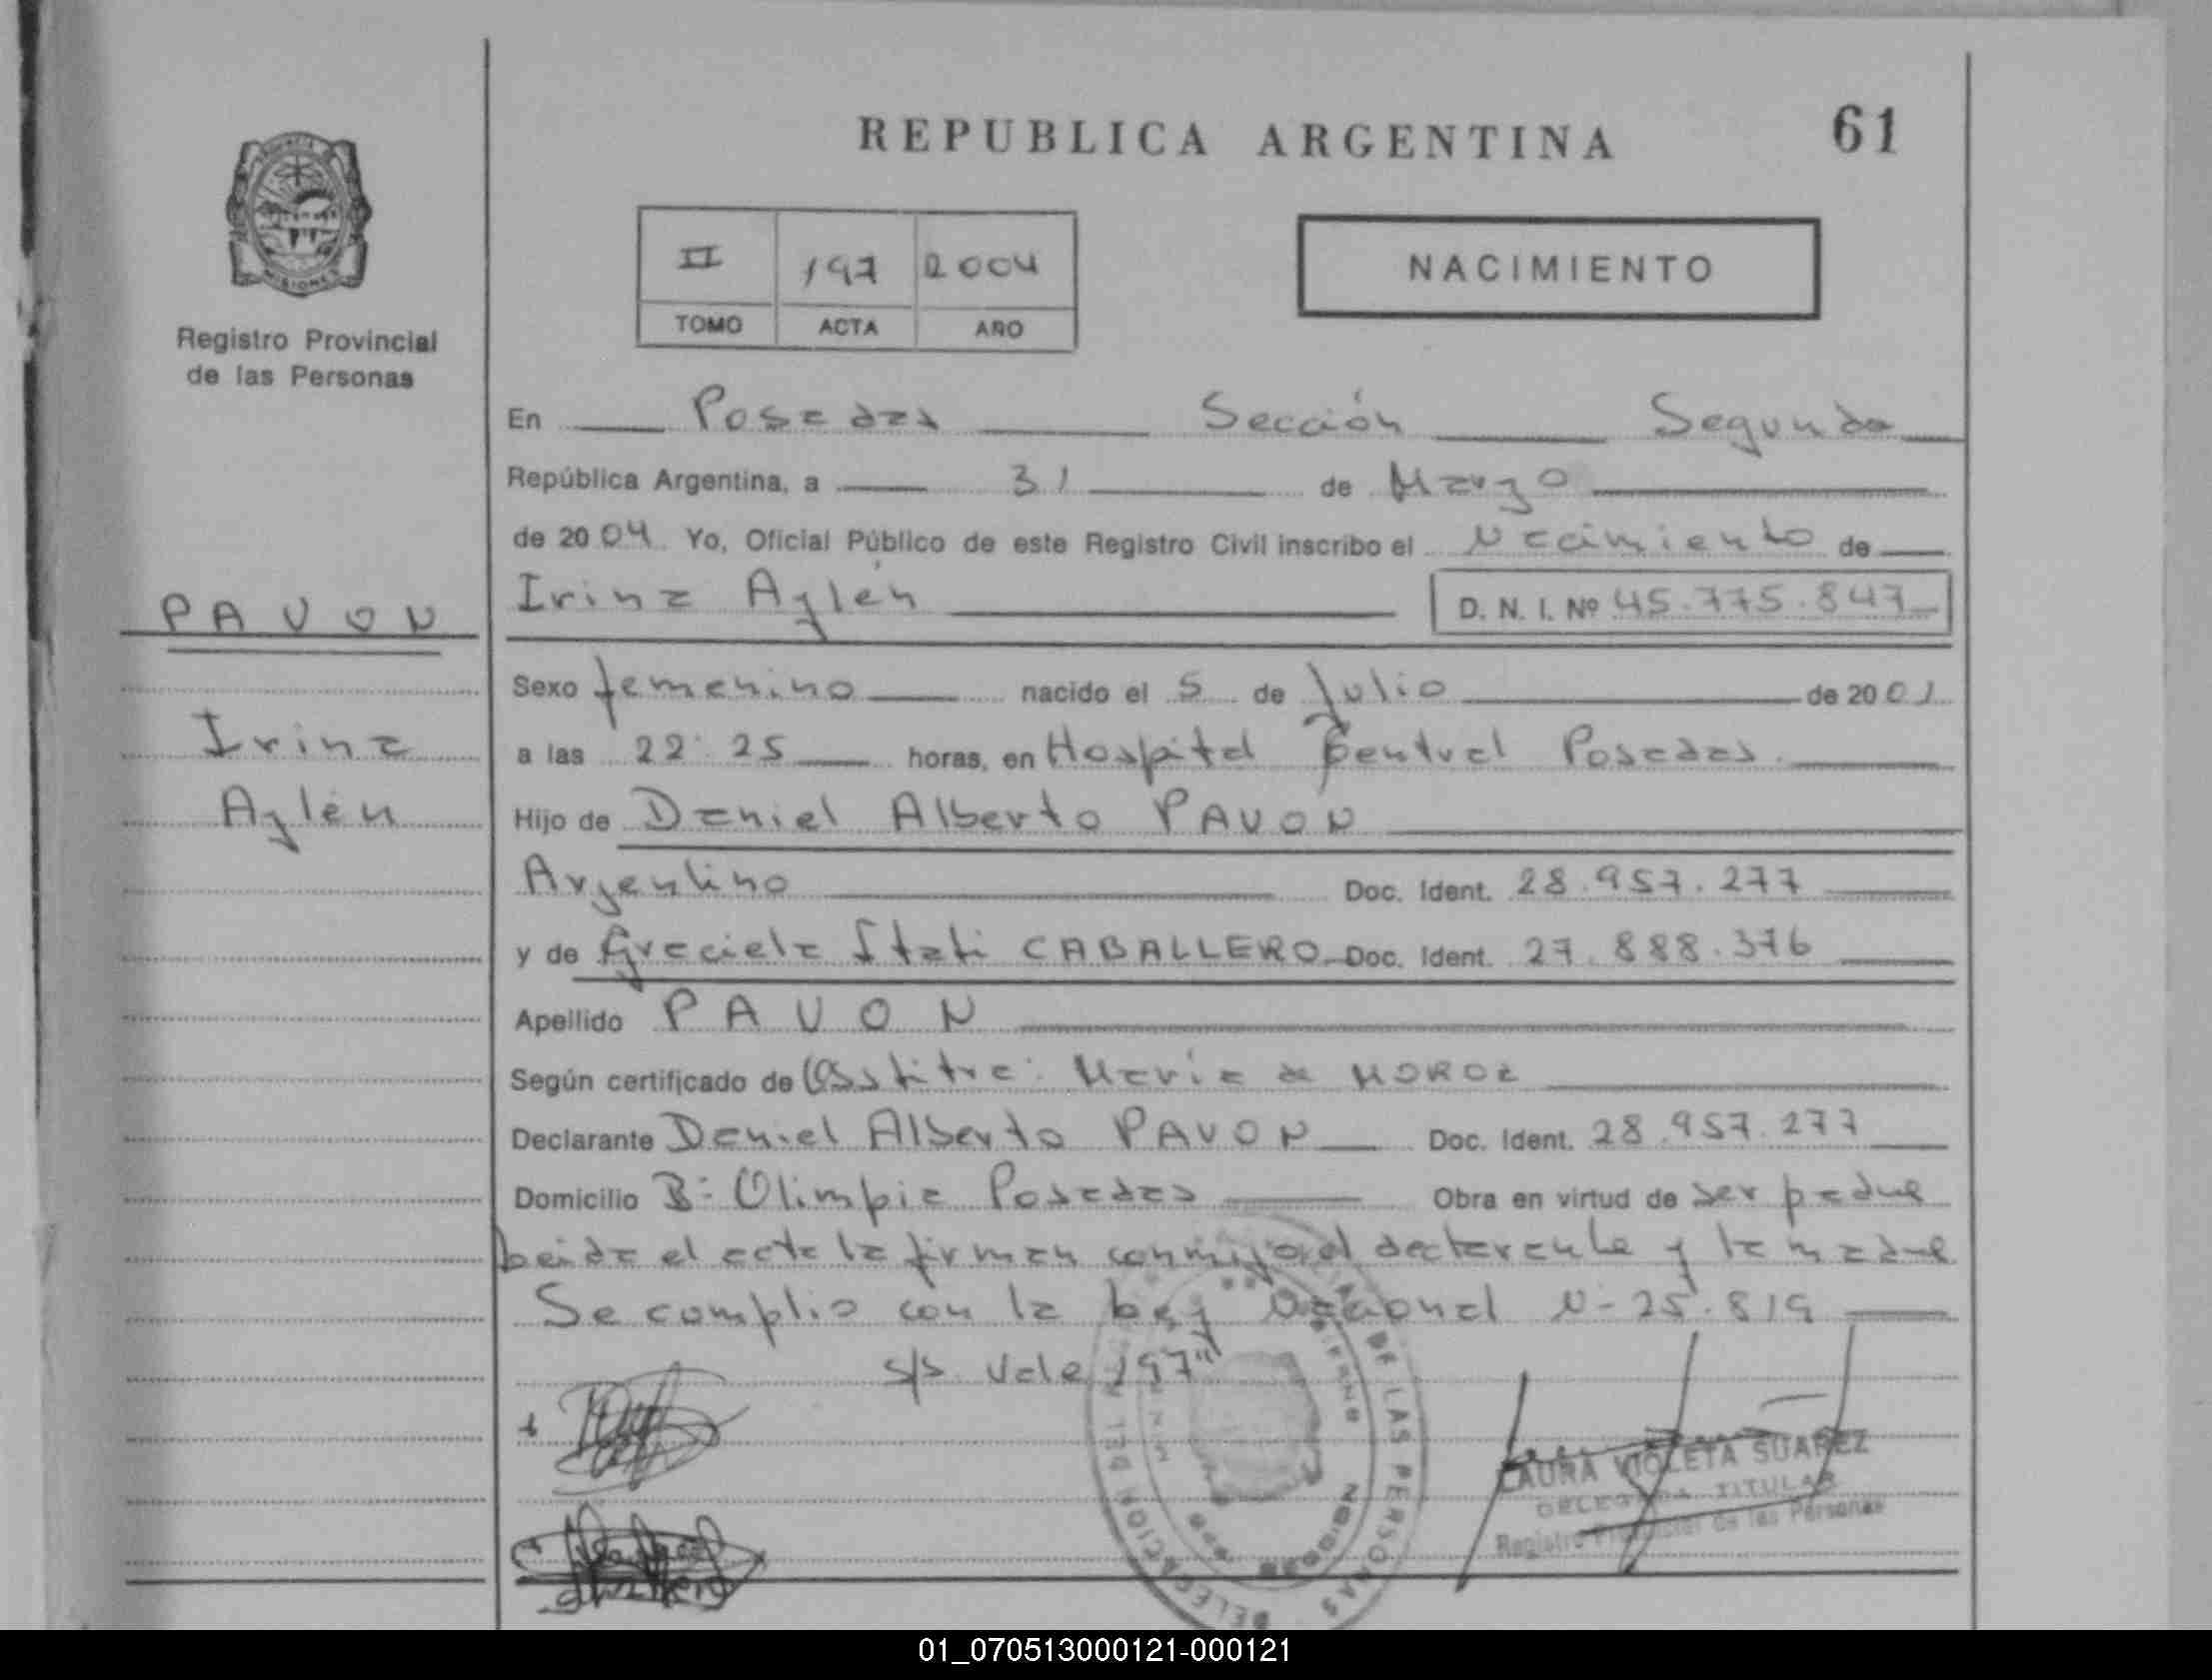 REPUBLICA ARGENTINA
61
II 197 2004
TOMO ACTA AÑO
NACIMIENTO
Registro Provincial
de las Personas
En Posadas Sección Segunda
República Argentina, a 31 de Marzo
de 2004 Yo, Oficial Público de este Registro Civil inscribo el Nacimiento de
PAVON
Irina Aylén D. N. I. Nº 45.775.847
Sexo femenino nacido el 5 de Julio de 2001
Irina
a las 22:25 horas, en Hospital Central Posadas.
Aylén
Hijo de Daniel Alberto PAVON
Argentino Doc. Ident. 28.957.277
y de Graciela Itati CABALLERO Doc. Ident. 27.888.376
Apellido PAVON
Según certificado de Obstitra: Maria de MOROZ
Declarante Daniel Alberto PAVON Doc. Ident. 28.957.277
Domicilio Bº Olimpia Posadas Obra en virtud de ser padre
Leida el acta la firman conmigo el declarante y la madre
Se complio con la Ley Nacional Nº 25.819
s/s Vale 197"
DE LAS PERSONAS
MISIONES
LAURA VIOLETA SUAREZ
DELEGADA TITULAR
Registro Provincial de las Personas
01_070513000121-000121